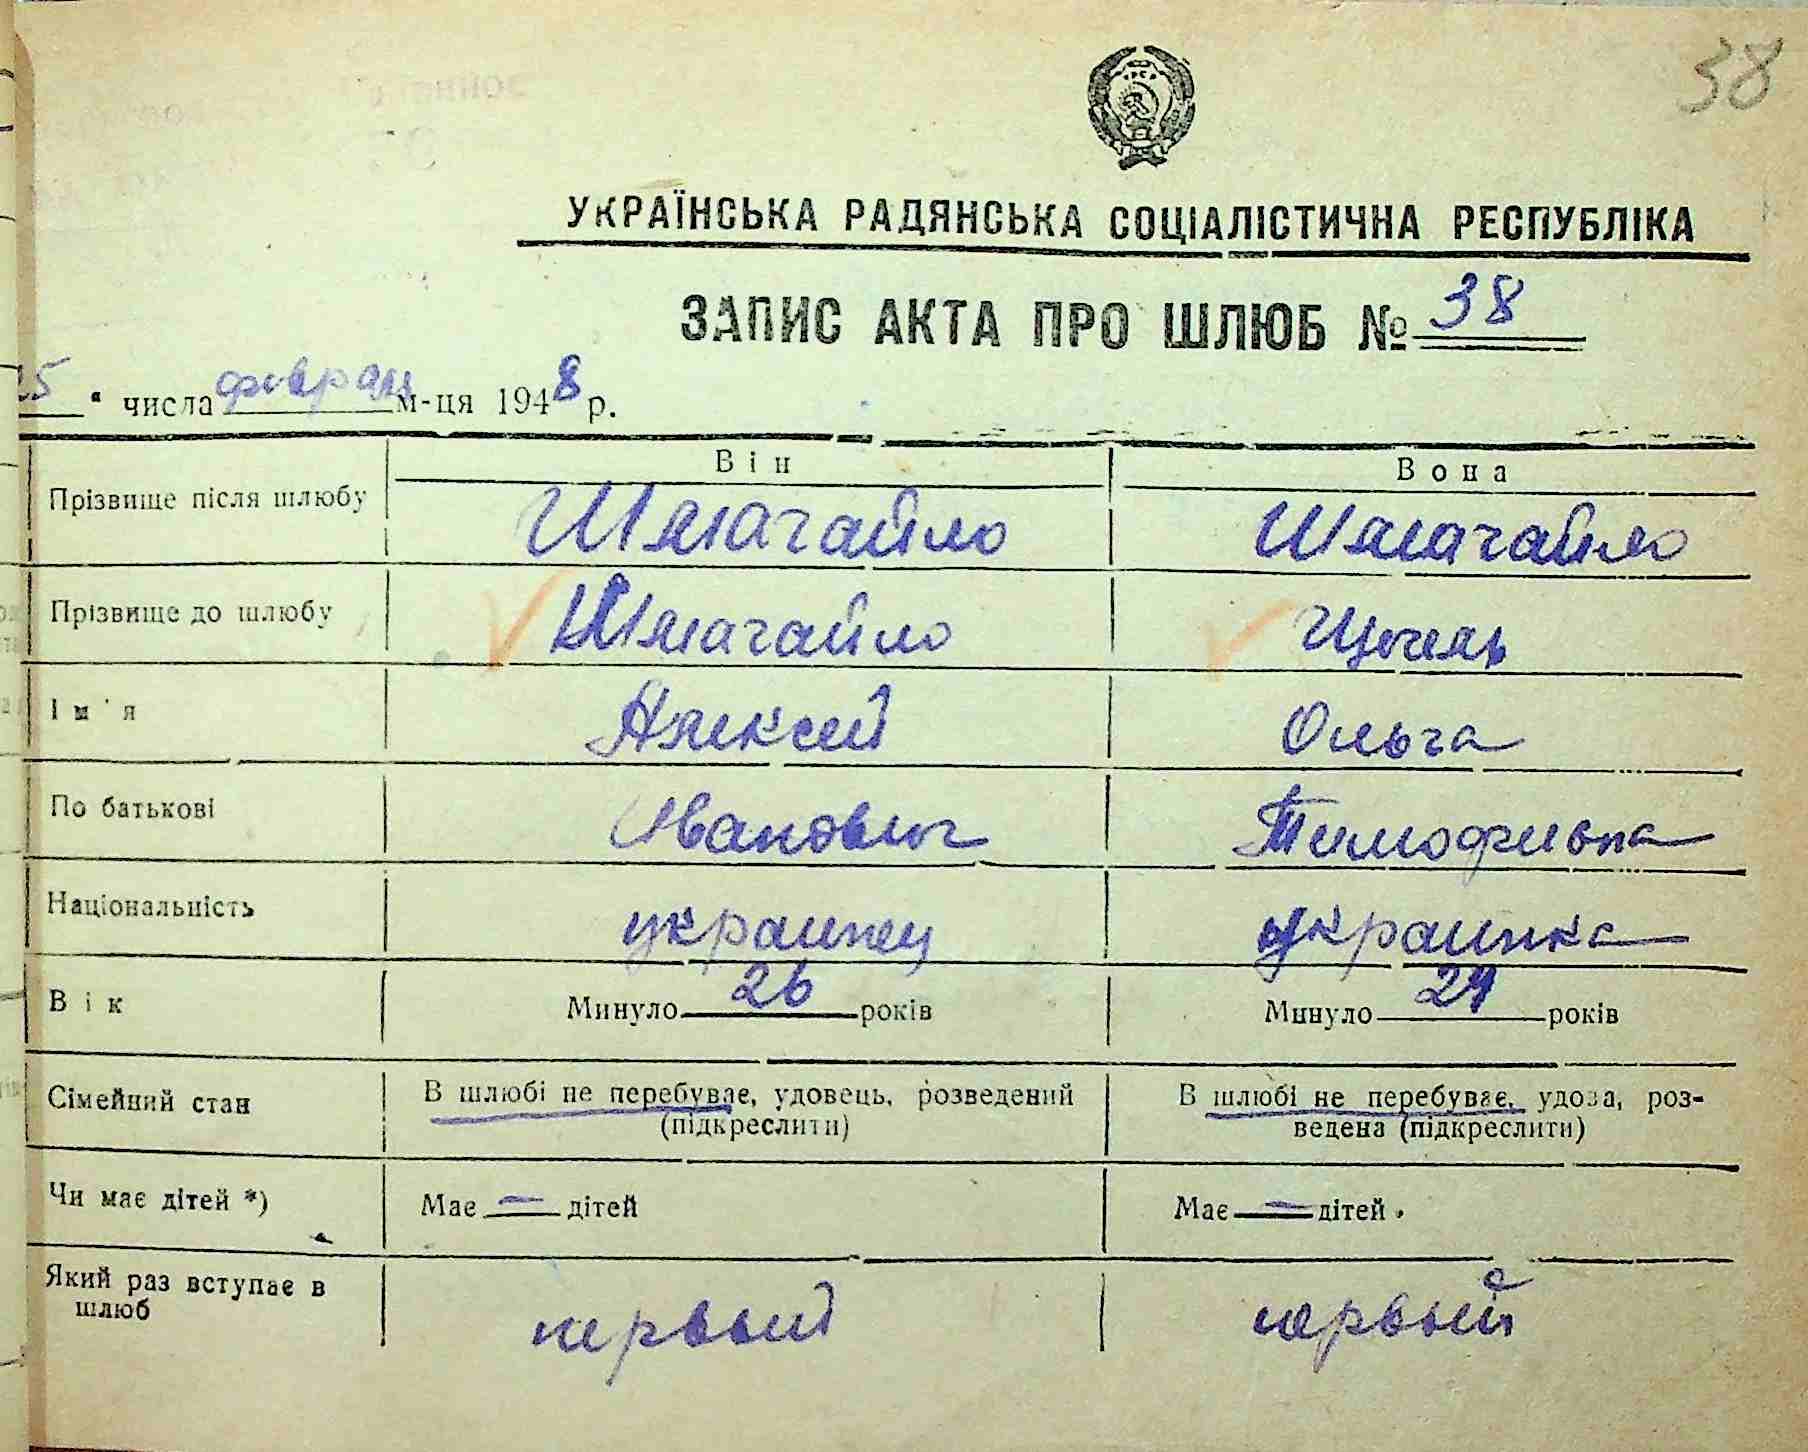 38
УКРАЇНСЬКА РАДЯНСЬКА СОЦІАЛІСТИЧНА РЕСПУБЛІКА
ЗАПИС АКТА ПРО ШЛЮБ № 38
числа февраля м-ця 1948 р.
Він Вона
Прізвище після шлюбу Шмагайло Шмагайло
Прізвище до шлюбу Шмагайло
Ім'я Алексей Ольга
По батькові Иванович Тимофивна
Національність украинец украинка
Вік Минуло 26 років Минуло 24 років
Сімейний стан В шлюбі не перебуває, удовець, розведений В шлюбі не перебуває, удова, роз-
(підкреслити) ведена (підкреслити)
Чи має дітей *) Має — дітей Має — дітей.
Який раз вступає в
шлюб первый первый